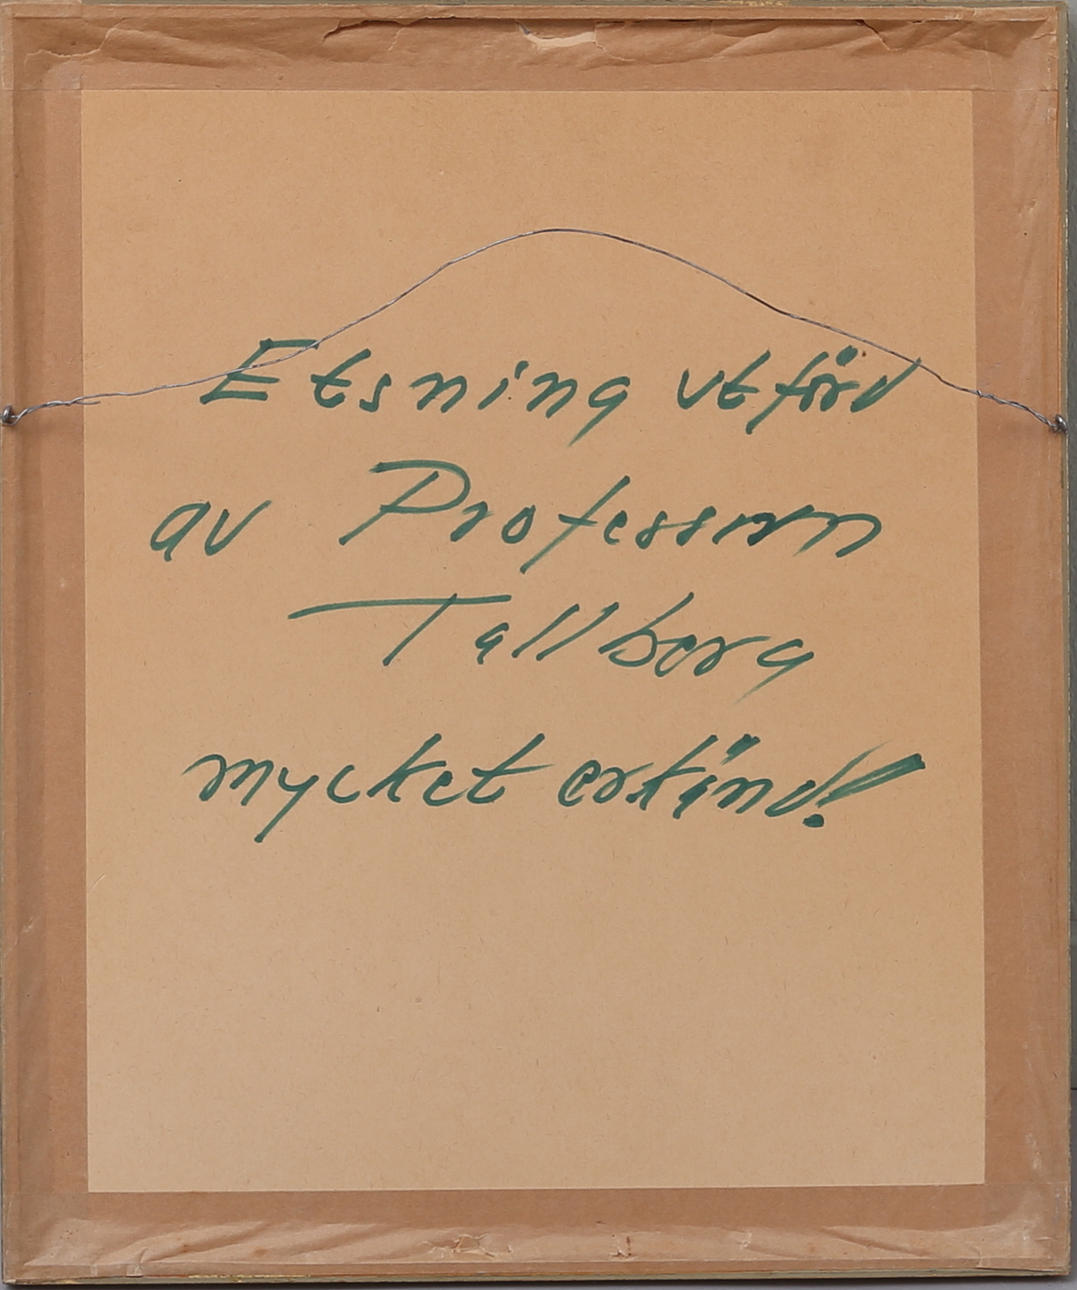 Etsning utförd
av Professorn
Tallberg
mycket erkänd!